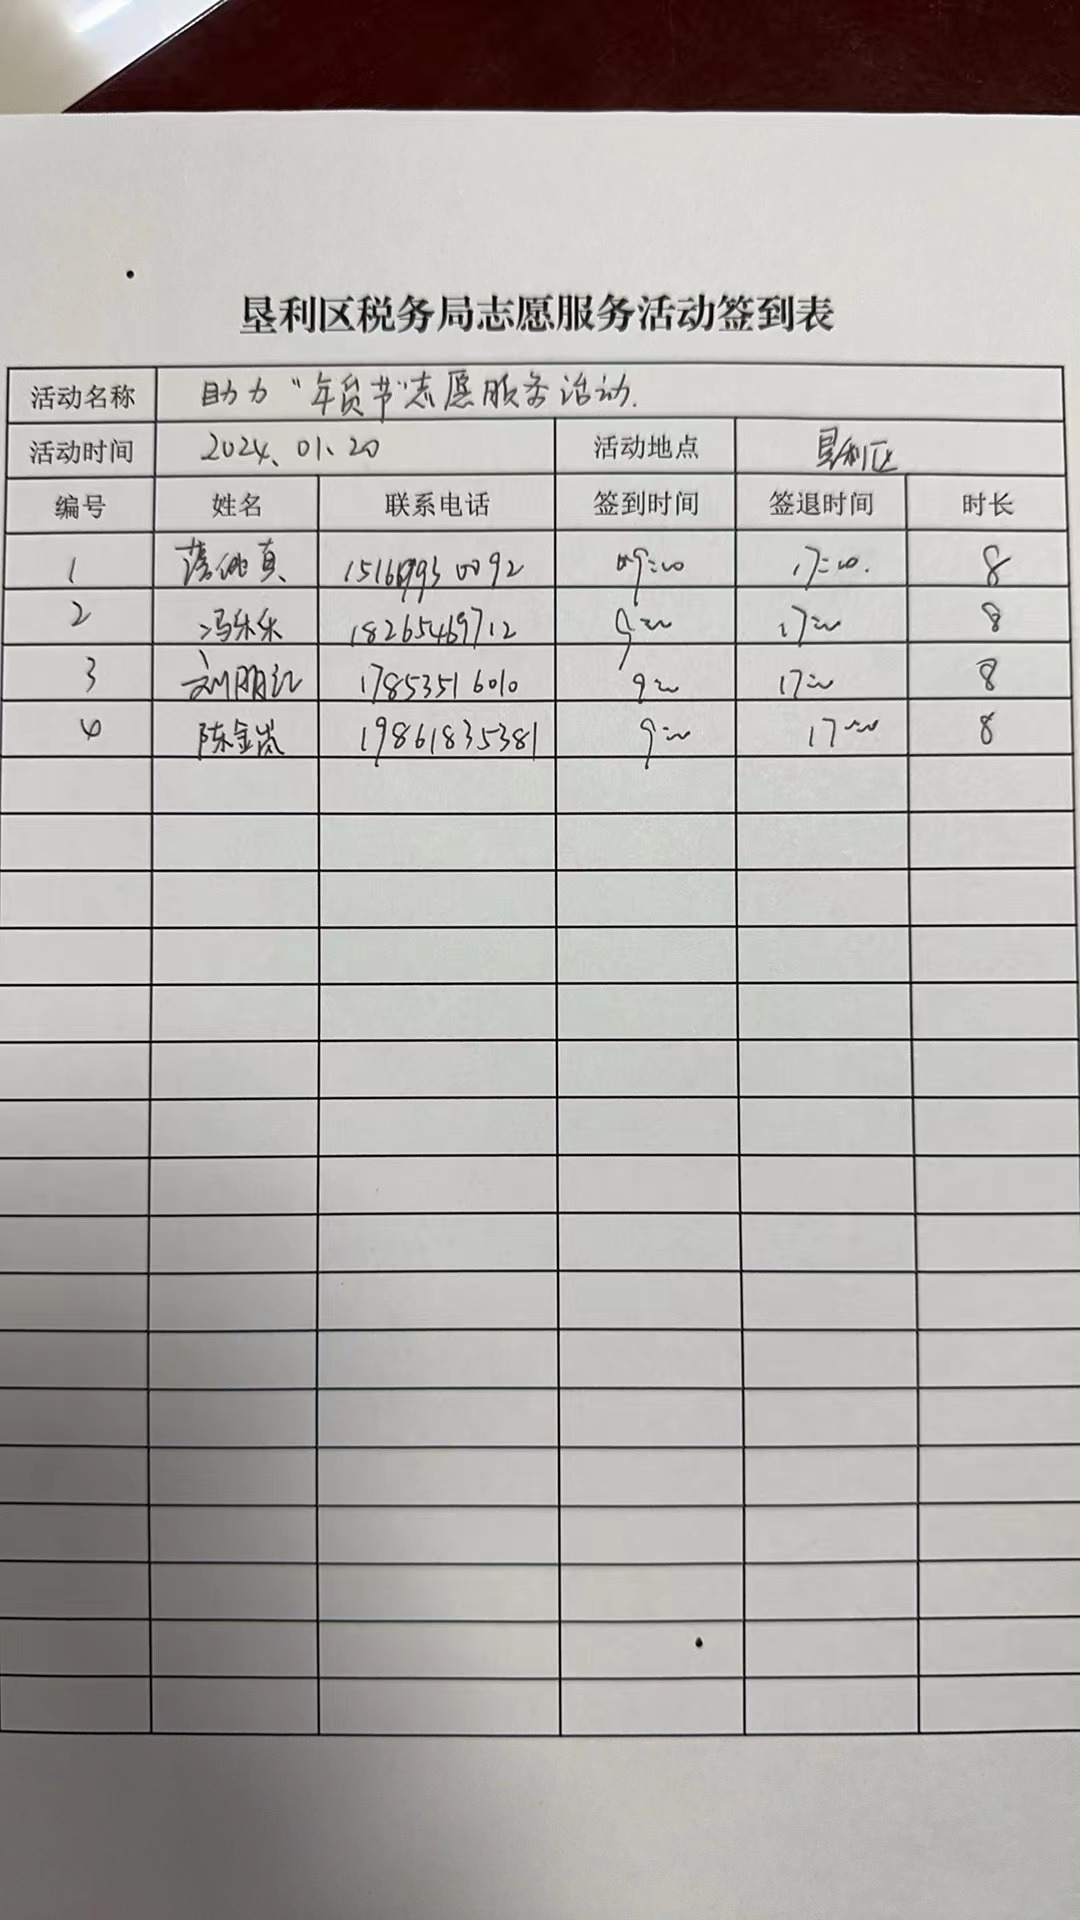 垦利区税务局志愿服务活动签到表
活动名称 助力“年货节”志愿服务活动.
活动时间 2024、01、20 活动地点 垦利区
编号 姓名 联系电话 签到时间 签退时间 时长
1 真 0092 17:00. 8
2 冯乐乐 18265469712 9:00 17:00 8
3 刘朋江 17853516010 9:00 17:00 8
4 陈金岚 19861835381 9:00 17:00 8